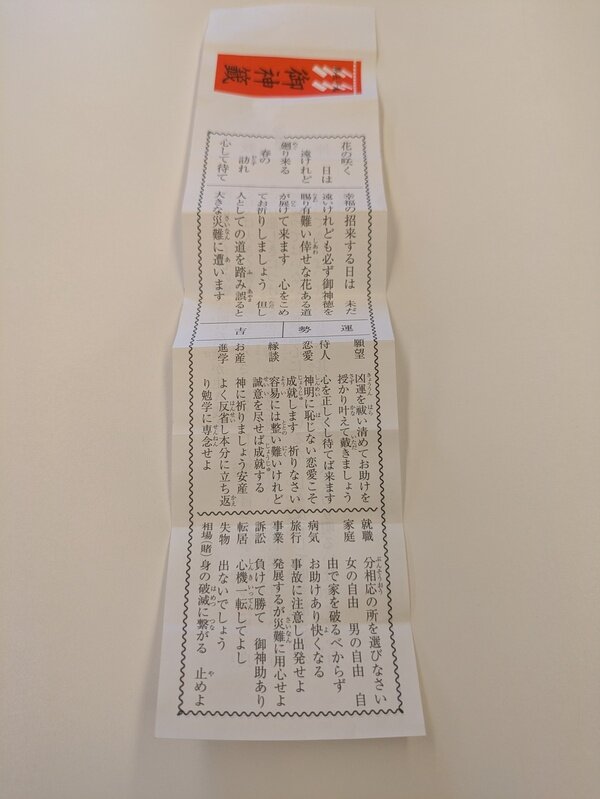 御神籤
花の咲く
日は
遠けれど
廻り来る
春の
訪れ
心して待て
幸福の招来する日は 未だ
遠いけれども必ず御神徳を
賜り有難い倖せな花ある道
が展けて来ます 心をこめ
てお祈りしましょう 但し
人としての道を踏み誤ると
大きな災難に遭います
運勢 吉
願望 凶運を祓い清めてお助けを
授かり叶えて戴きましょう
待人 心を正しくし待てば来ます
恋愛 神明に恥じない恋愛こそ
成就します 祈りなさい
縁談 容易には整い難いけれど
誠意を尽せば成就する
お産 神に祈りましょう安産
進学 よく反省し本分に立ち返
り勉学に専念せよ
就職 分相応の所を選びなさい
家庭 女の自由 男の自由 自
由で家を破るべからず
病気 お助けあり快くなる
旅行 事故に注意し出発せよ
事業 発展するが災難に用心せよ
訴訟 負けて勝て 御神助あり
転居 心機一転してよし
失物 出ないでしょう
相場(賭) 身の破滅に繋がる 止めよ